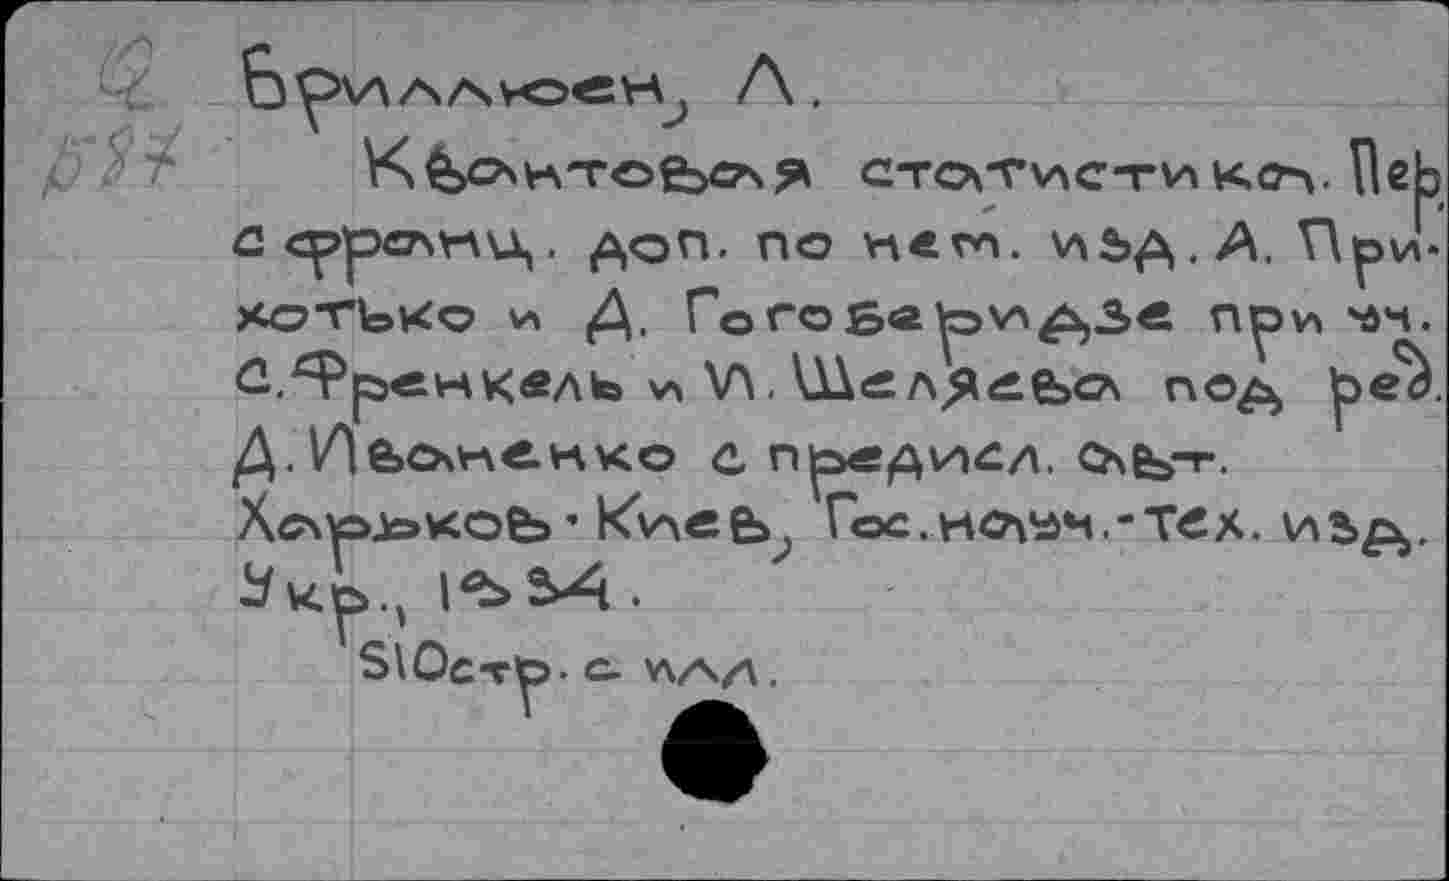 Бриллюен, Л.
Квантовая статистика. Пер.
с франц. доп. по нем. изд. А. При-
хотько и Д. Гогоберидзе при уч.
С. Френкель и И. Шеляева под ред.
Д. Иваненко с предисл. авт.
Харьков • Киев, Гос. науч.-тех. изд.
Укр., 1934.
510стр. с илл.